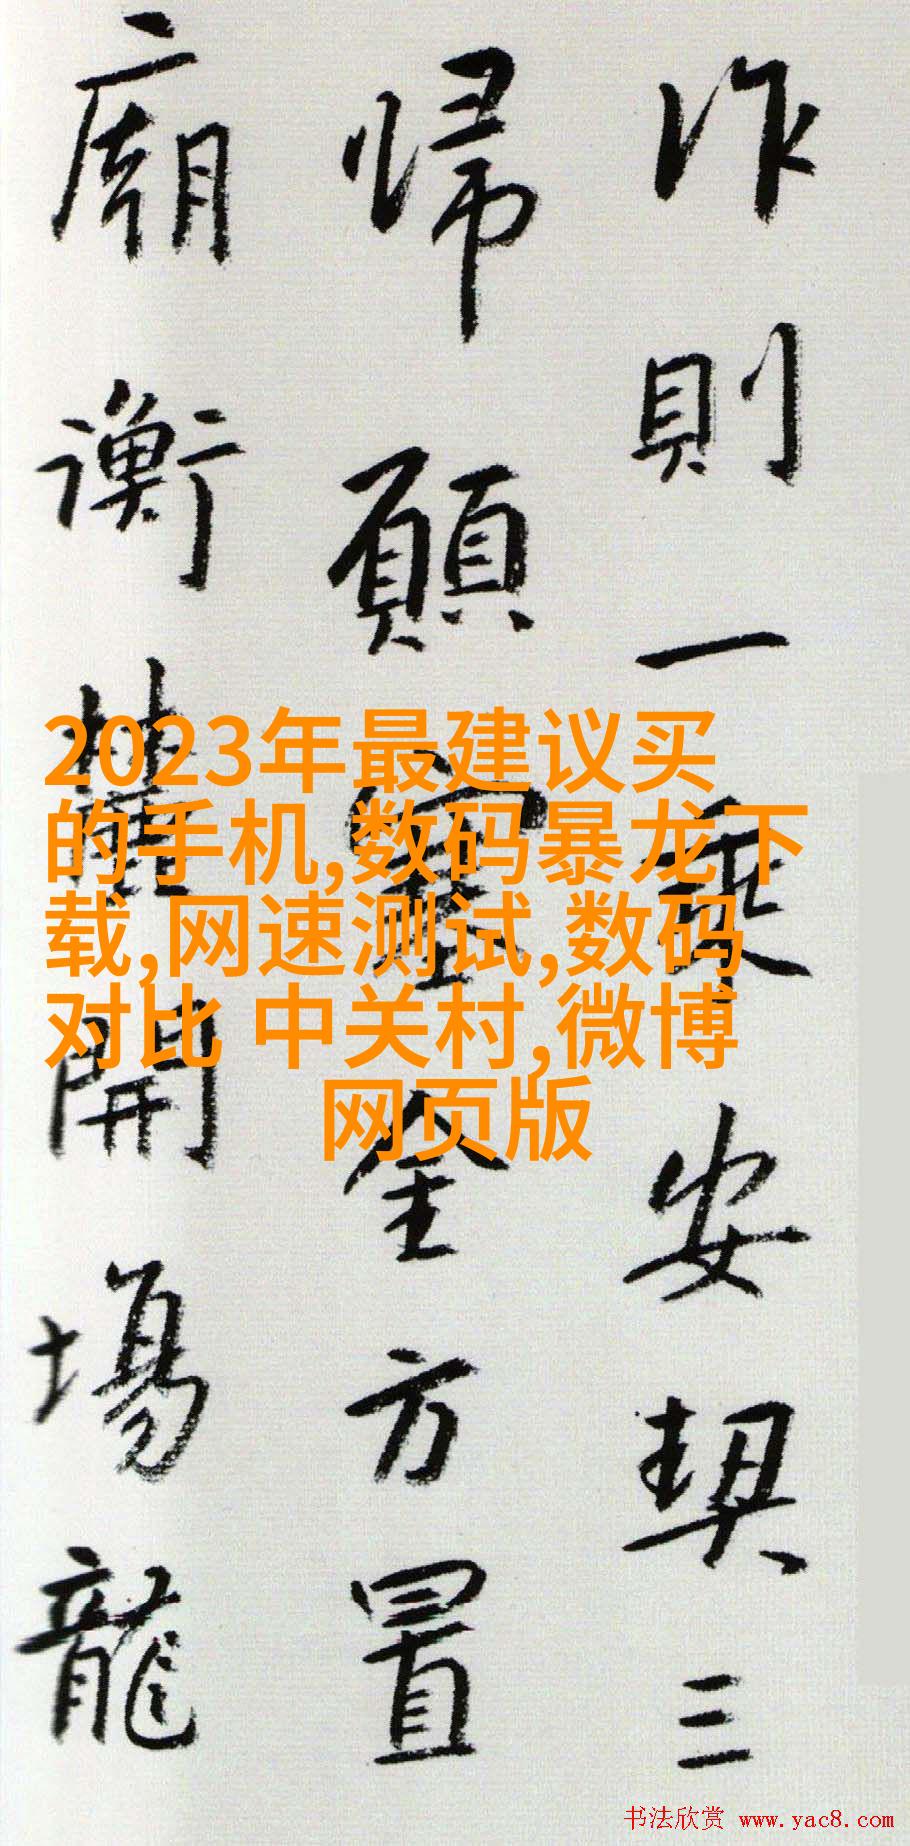 作則一乘安契三
帰願全方置
廟衡開場龍
2023年最建议买
的手机,数码暴龙下
载,网速测试,数码
对比 中关村,微博
网页版
书法欣赏 www.yac8.com